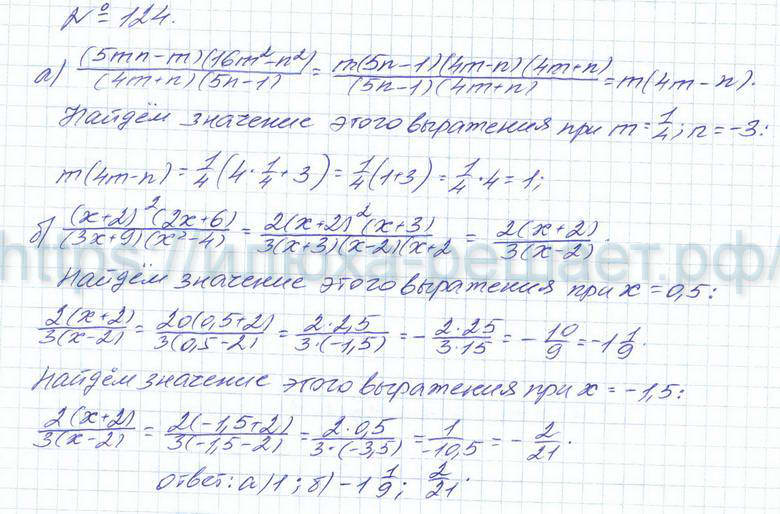 № 124.
а) (5mn-m)(16m²-n²)/(4m+n)(5n-1) = m(5n-1)(4m-n)(4m+n)/(5n-1)(4m+n) = m(4m-n).
Найдём значение этого выражения при m=1/4; n=-3:
m(4m-n)=1/4(4·1/4+3)=1/4(1+3)=1/4·4=1;
б) (x+2)²(2x+6)/(3x+9)(x²-4) = 2(x+2)²(x+3)/3(x+3)(x-2)(x+2 = 2(x+2)/3(x-2).
https://илюхарешает.рф/
Найдём значение этого выражения при x=0,5:
2(x+2)/3(x-2) = 20(0,5+2)/3(0,5-2) = 2·2,5/3·(-1,5) = -2·25/3·15 = -10/9 = -1 1/9.
Найдём значение этого выражения при x=-1,5:
2(x+2)/3(x-2) = 2(-1,5+2)/3(-1,5-2) = 2·0,5/3·(-3,5) = 1/-10,5 = -2/21.
ответ: а) 1; б) -1 1/9; 2/21.